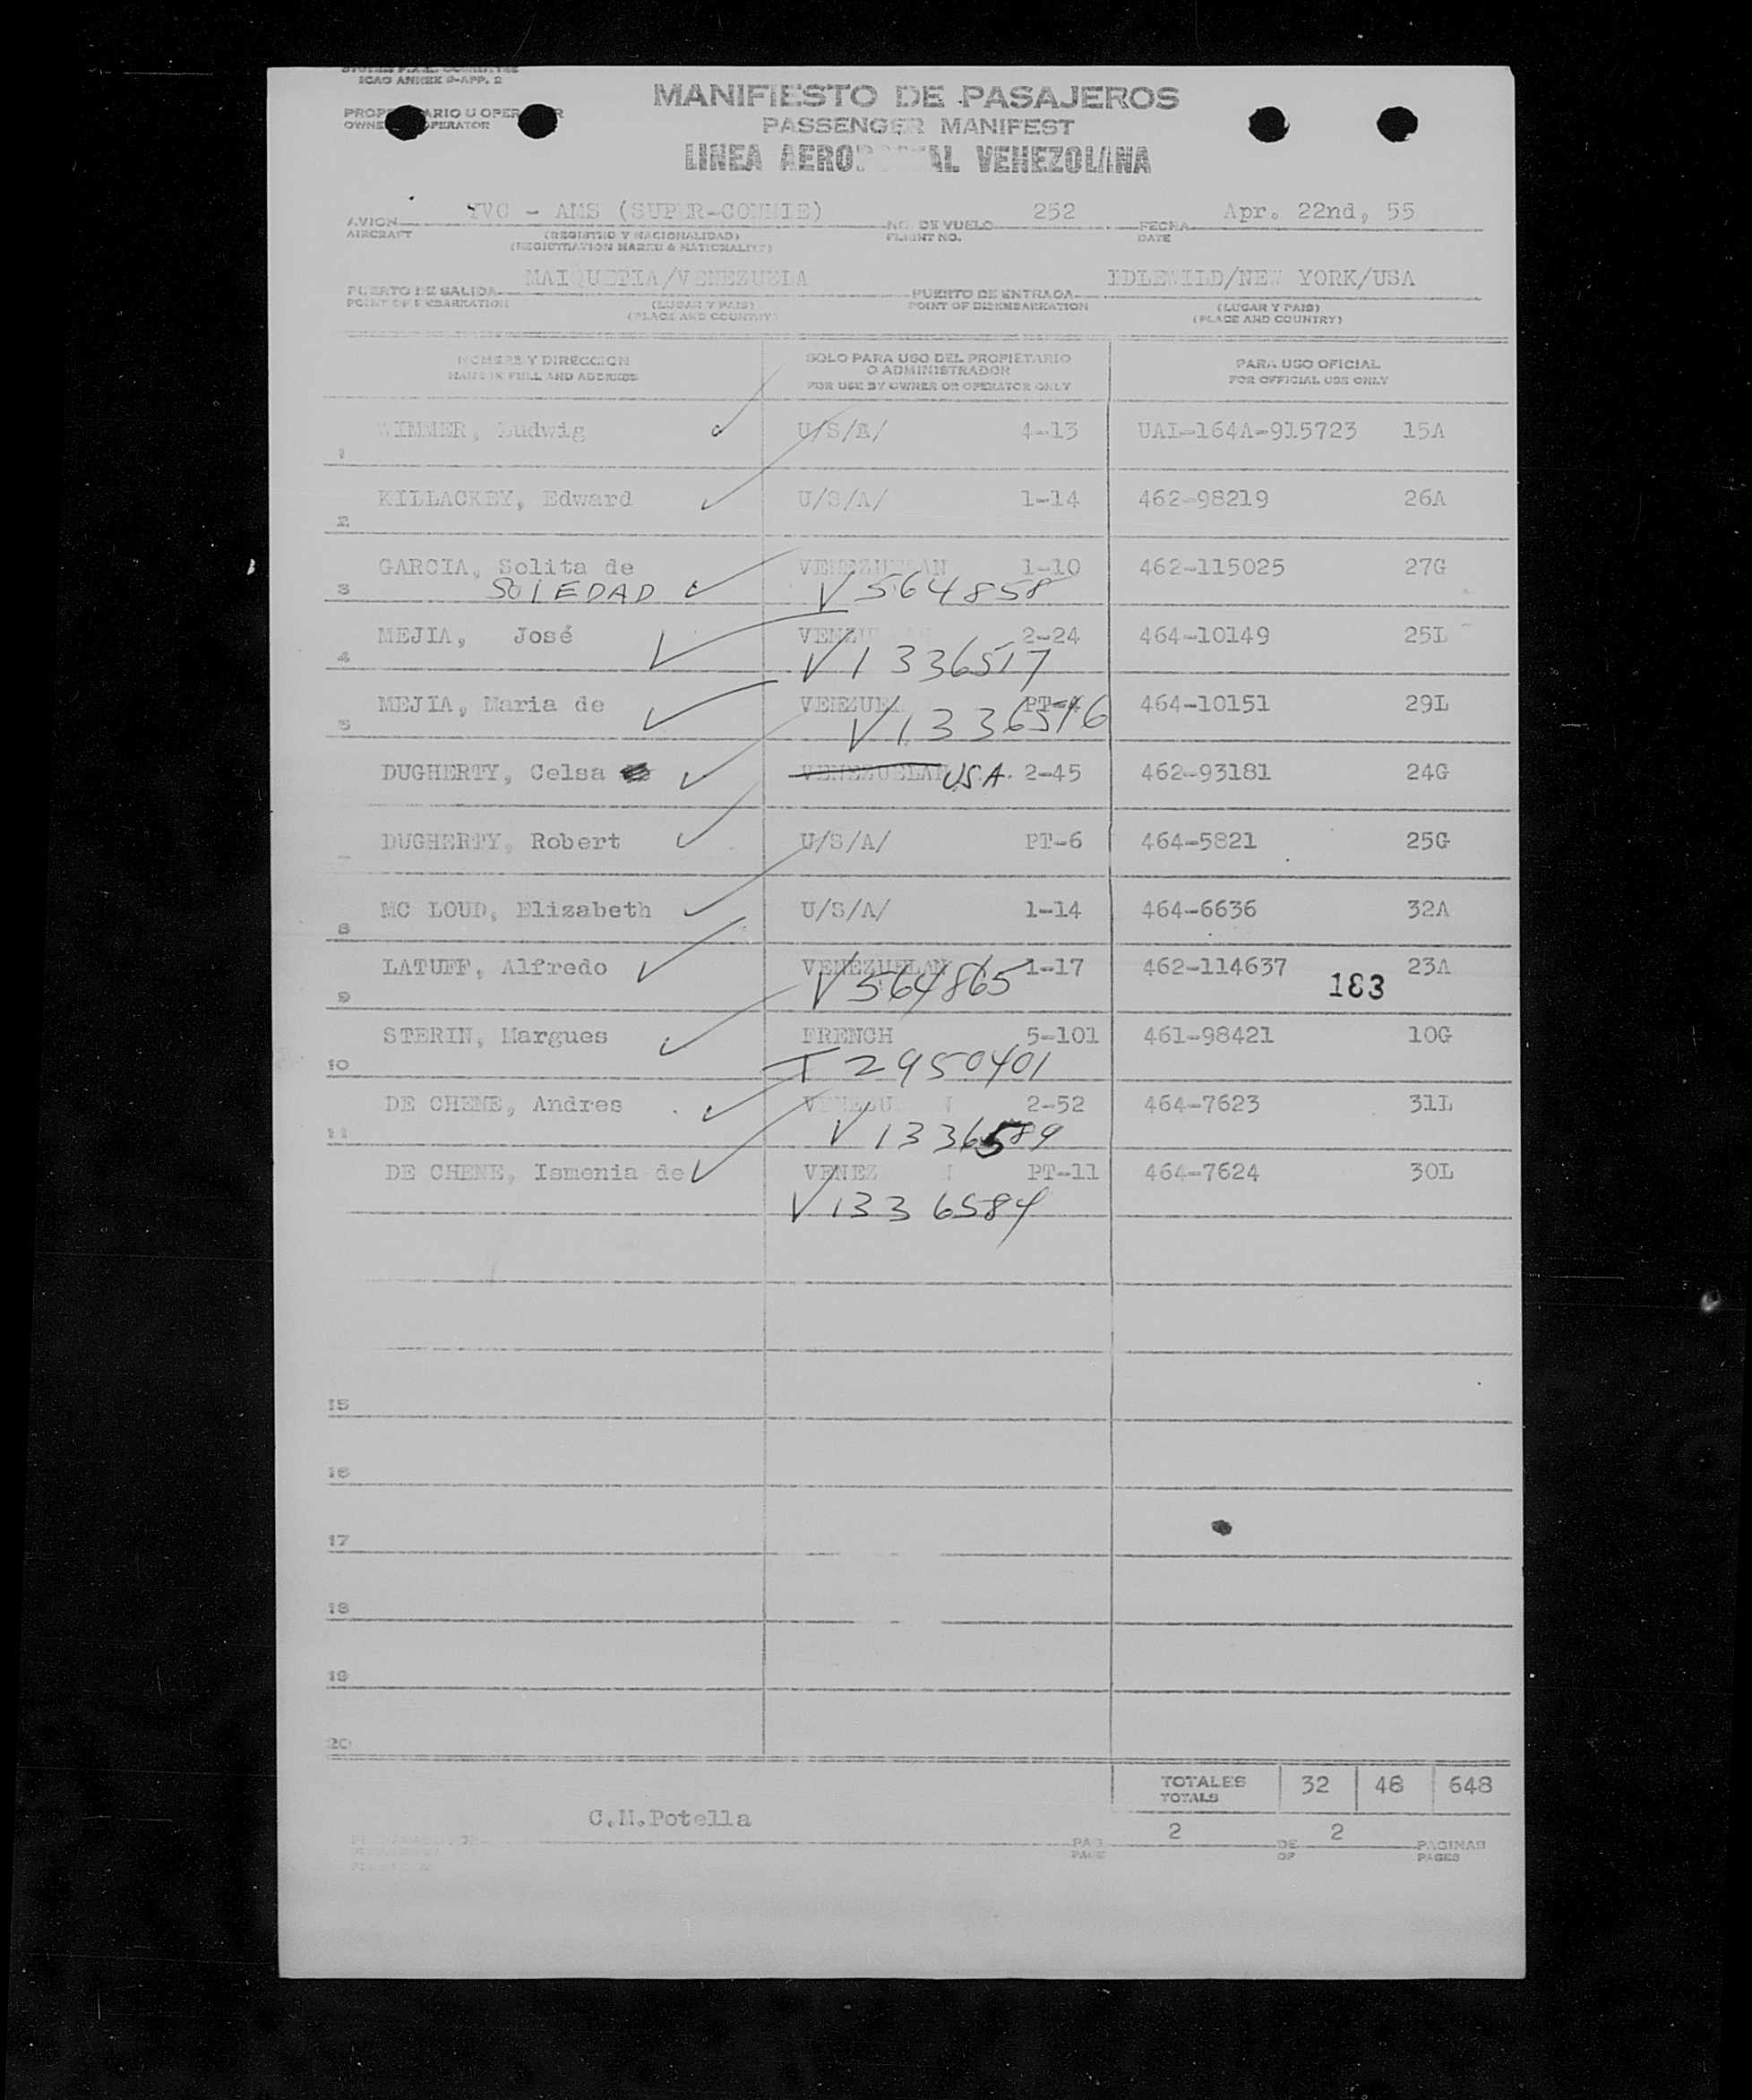 ICAO ANNEX 9-APP. 2
MANIFIESTO DE PASAJEROS
PASSENGER MANIFEST
LINEA AEROPOSTAL VENEZOLANA
AVION YVC - AMS (SUPER-CONNIE) NO. DE VUELO 252 FECHA Apr. 22nd, 55
AIRCRAFT (REGISTRO Y NACIONALIDAD) FLIGHT NO. DATE
(REGISTRATION MARKS & NATIONALITY)
PUERTO DE SALIDA MAIQUETIA/VENEZUELA PUERTO DE ENTRADA IDLEWILD/NEW YORK/USA
POINT OF EMBARKATION (LUGAR Y PAIS) POINT OF DISEMBARKATION (LUGAR Y PAIS)
(PLACE AND COUNTRY) (PLACE AND COUNTRY)
NOMBRE Y DIRECCION SOLO PARA USO DEL PROPIETARIO O ADMINISTRADOR PARA USO OFICIAL
NAME IN FULL AND ADDRESS FOR USE BY OWNER OR OPERATOR ONLY FOR OFFICIAL USE ONLY
1 WIMMER, Ludwig U/S/A/ 4-13 UAI-164A-915723 15A
2 KILLACKEY, Edward U/S/A/ 1-14 462-98219 26A
GARCIA, Solita de VENEZUELAN 1-10 462-115025 27G
3 SOlEDAD V 564858
MEJIA, José 2-24 464-10149 25L
4 V1336517
MEJIA, Maria de PT-4 464-10151 29L
5 V1336516
DUGHERTY, Celsa VENEZUELAN U.S.A. 2-45 462-93181 24G
DUGHERTY, Robert U/S/A/ PT-6 464-5821 25G
8 MC LOUD, Elizabeth U/S/A/ 1-14 464-6636 32A
LATUFF, Alfredo VENEZUELAN 1-17 462-114637 23A
9 V 564865 183
STERIN, Margues FRENCH 5-101 461-98421 10G
10 I 2950401
DE CHENE, Andres 2-52 464-7623 31L
11 V 1336589
DE CHENE, Ismenia de PT-11 464-7624 30L
V1336584
15
16
17
18
19
20
TOTALES 32 48 648
TOTALS
C.M.Potella
PAG. 2 DE 2 PAGINAS
PAGE OF PAGES